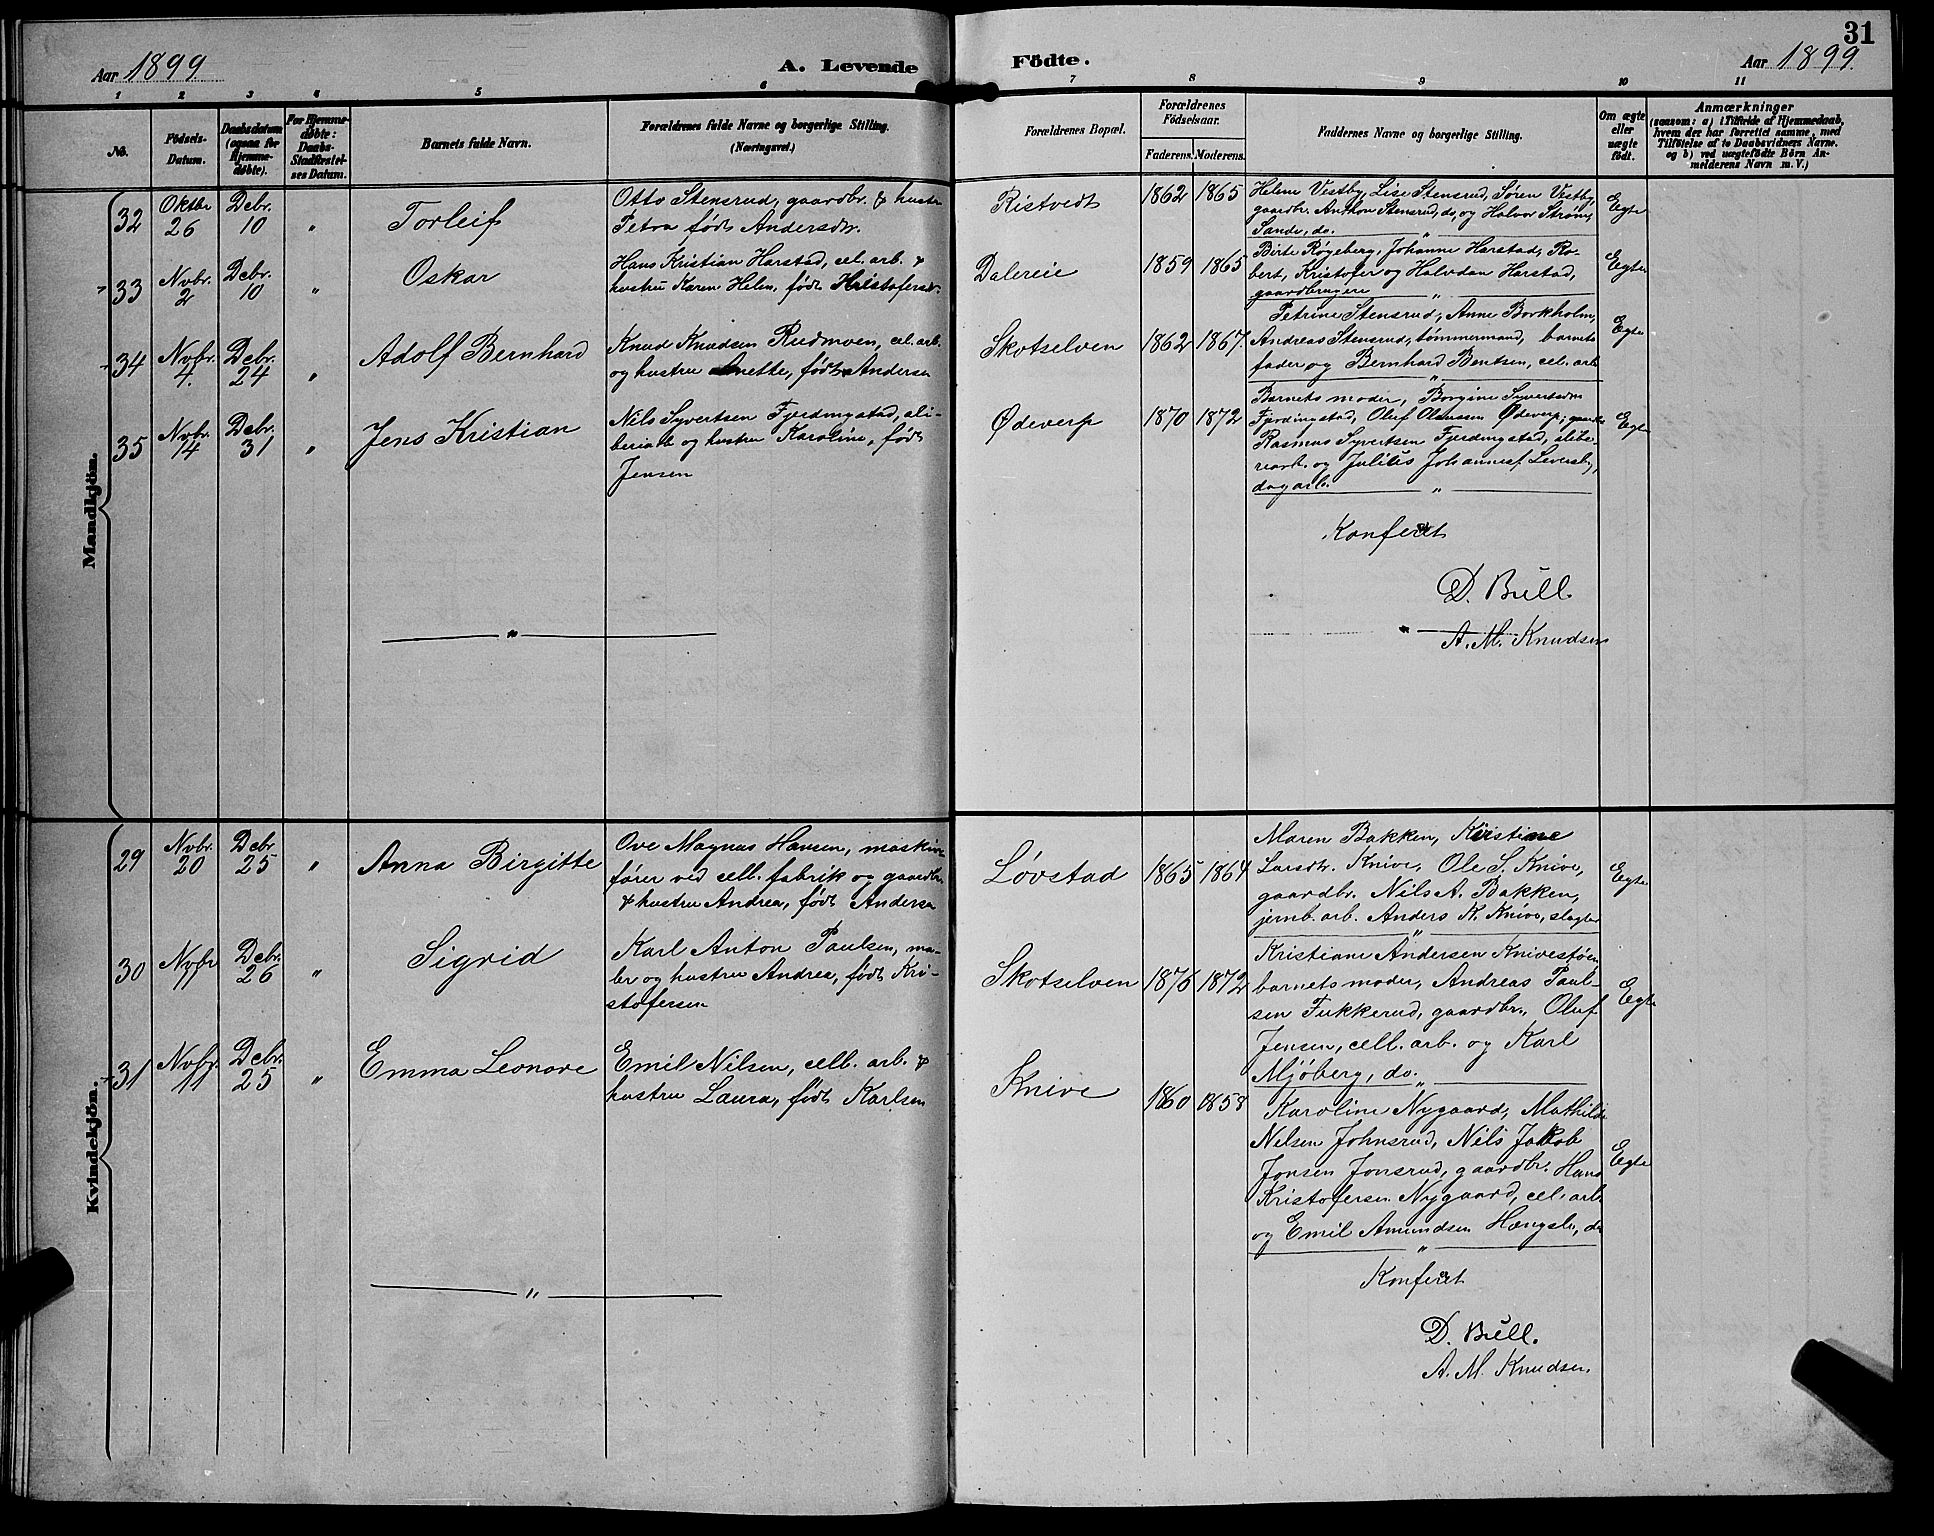 31
Aar 1899
A. Levende
Födte.
Aar 1899.
1 2 3 4 5 6 7 8 9 10 11
No.
Födsels-
Datum.
Daabsdatum
(ogsaa for
Hjemme-
døbte).
For Hjemme-
døbte:
Daabs-
Stadfæstel-
ses Datum.
Barnets fulde Navn.
Forældrenes fulde Navne og borgerlige Stilling.
(Næringsvei.)
Forældrenes Bopæl.
Forældrenes
Födselsaar.
Faderens. Moderens.
Faddernes Navne og borgerlige Stilling.
Om ægte
eller
uægte
födt.
Anmærkninger
(saasom: a) i Tilfælde af Hjemmedaab,
hvem der har forrettet samme, med
Tilföielse af to Daabsvidners Navne,
og b) ved uægtefödte Börn An-
melderens Navn m. V.)
Mandkjön.
32
Oktbr
26
Debr.
10
"
Torleif
Otto Stensrud, gaardbr. & hustru
Petra født Andersdtr.
Ristvedt
1862 1865
Helene Vestby, Lise Stensrud, Søren Vestby,
gaardbr. Anthon Stensrud, do, og Halvor Strøm,
Sande, do.
Egte
33
Nvbr.
2
Debr.
10
"
Oskar
Hans Kristian Harstad, cel. arb. &
hustru Karen Helen, født Kristofersdr.
Dalereie
1859 1865
Birte Røgeberg, Johanne Harstad, Ro-
bert, Kristofer og Halvdan Harstad,
gaardbrugere
Egte
34
Nvbr.
4.
Debr.
24
"
Adolf Bernhard
Knud Knudsen Rudmoen, cel. arb.
og hustru Anette, født Andersen
Skotselven
1862 1867.
Petrine Stensrud, Anne Borkholm,
Andreas Stensrud, tømmermand, barnets
fader og Bernhard Bentsen, cel. arb
Egte
35
Nvbr.
14
Debr.
31
"
Jens Kristian
Nils Syvertsen Fjerdingstad, sli-
beriarb og hustru Karoline, født
Jensen
Ødeverp
1870 1872
Barnets moder, Borgine Syvertsen
Fjerdingstad, Oluf Olaussen Ødeverp, gaardbr
Rasmus Syvertsen Fjerdingstad, slibe-
riarb. og Julius Johannes. Leversby,
dagarb.
Egte
Konferet
D. Bull.
A. M. Knudsen
Kvindekjön.
29
Nvbr.
20
Debr
25
"
Anna Birgitte
Ove Magnus Hansen, maskin-
fører ved cell. fabrik og gaardbr.
& hustru Andrea, født Andersen
Løvstad
1865 1864
Maren Bakken, Kristiane
Larsdtr. Knive, Ole S. Knive,
gaardbr. Nils A. Bakken,
jernb. arb. Anders K. Knive, slagter
Egte
30
Nvbr
11
Debr.
26
"
Sigrid
Karl Anton Paulsen, ma-
ler og hustru Andrea, født Kri-
stofersen
Skotselven
1876 1872
Kristiane Andersen Knivestøen
barnets moder, Andreas Paul-
sen Fukkerud, gaardbr., Oluf
Jensen, cell. arb. og Karl
Mjøberg, do.
Egte
31
Nvbr.
11
Debr.
25
"
Emma Leonore
Emil Nilsen, cell. arb. &
hustru Laura, født Karlsen
Knive
1860 1858
Karoline Nygaard, Mathilde
Nelsen Johnsrud, Nils Jakob
Jonsen Jonsrud, gaardbr. Hans
Kristofersen Nygaard, cel. arb.
og Emil Amundsen Hængsle, do
Egte
Konferet
D. Bull.
A. M. Knudsen